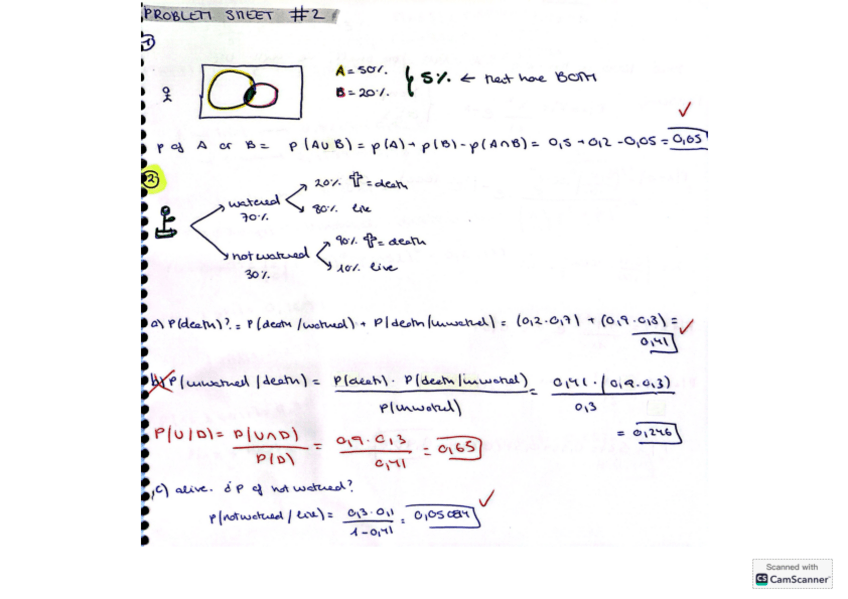 PROBLEM SHEET #2
1
A = 50%.
B = 20%.
5% ← must have BOTH
P of A or B = P(A∪B) = P(A) + P(B) - P(A∩B) = 0,5 + 0,2 - 0,05 = 0,65
2
watered 70%.
20% = death
80%. live
not watered 30%.
90%. = death
10%. live
a) P(death)? = P(death/watered) + P(death/unwatered) = (0,2·0,7) + (0,9·0,3) =
0,41
b) P(unwatered/death) = P(death) · P(death/unwatered) / P(unwatered) = 0,41 · (0,9·0,3) / 0,3
= 0,246
P(U/D) = P(U∩D) / P(D) = 0,9·0,3 / 0,41 = 0,65
c) alive. ¿P of not watered?
P(not watered / live) = 0,3·0,1 / 1-0,41 = 0,05084
Scanned with
CS CamScanner